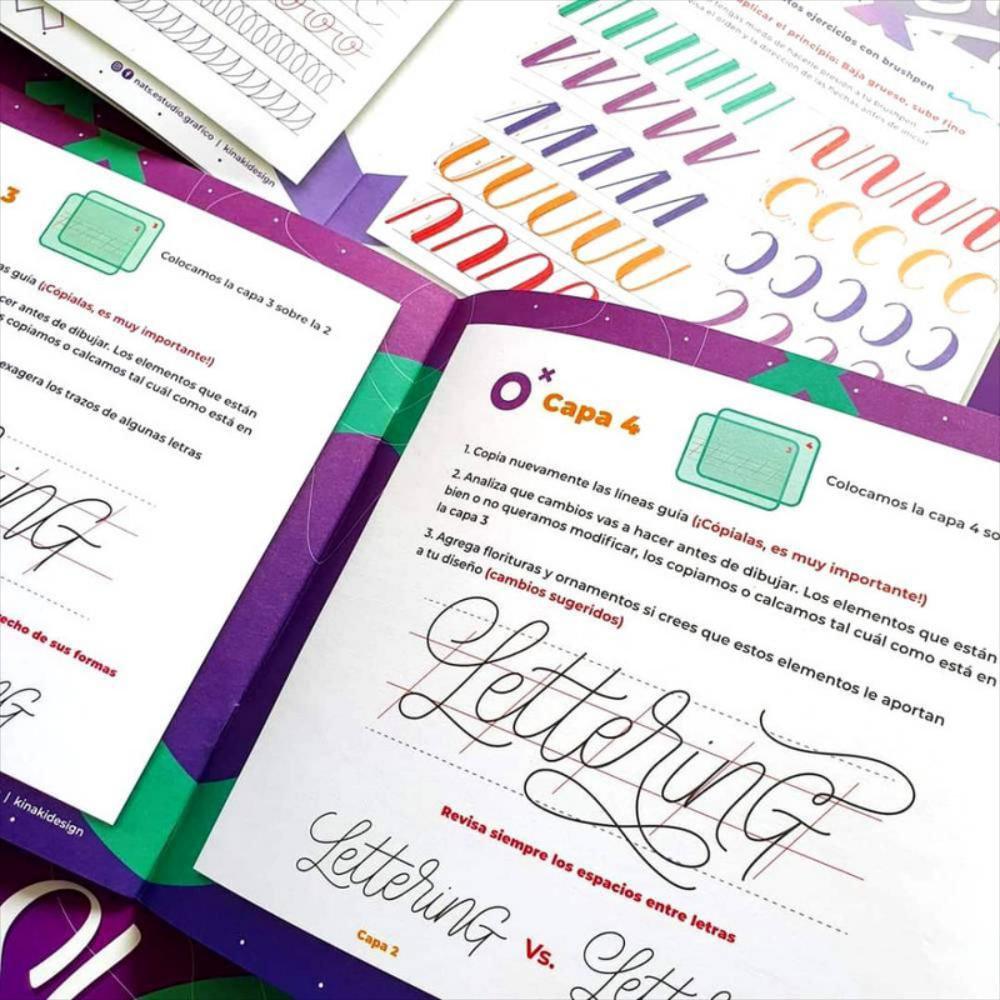 nats.estudio.grafico | kinakidesign
ejercicios con brushpen
aplicar el principio: Baja grueso, sube fino
tengas miedo de hacerle presión a tu brushpen
el orden y la dirección de las flechas antes de iniciar
3
2
3
Colocamos la capa 3 sobre la 2
guía (¡Cópialas, es muy importante!)
antes de dibujar. Los elementos que están
copiamos o calcamos tal cuál como está en
exagera los trazos de algunas letras
de sus formas
| kinakidesign
Capa 4
3
4
Colocamos la capa 4
1. Copia nuevamente las líneas guía (¡Cópialas, es muy importante!)
2. Analiza que cambios vas a hacer antes de dibujar. Los elementos que están
bien o no queramos modificar, los copiamos o calcamos tal cuál como está en
la capa 3
3. Agrega florituras y ornamentos si crees que estos elementos le aportan
a tu diseño (cambios sugeridos)
LetterinG
Revisa siempre los espacios entre letras
LetterinG
Vs.
Capa 2